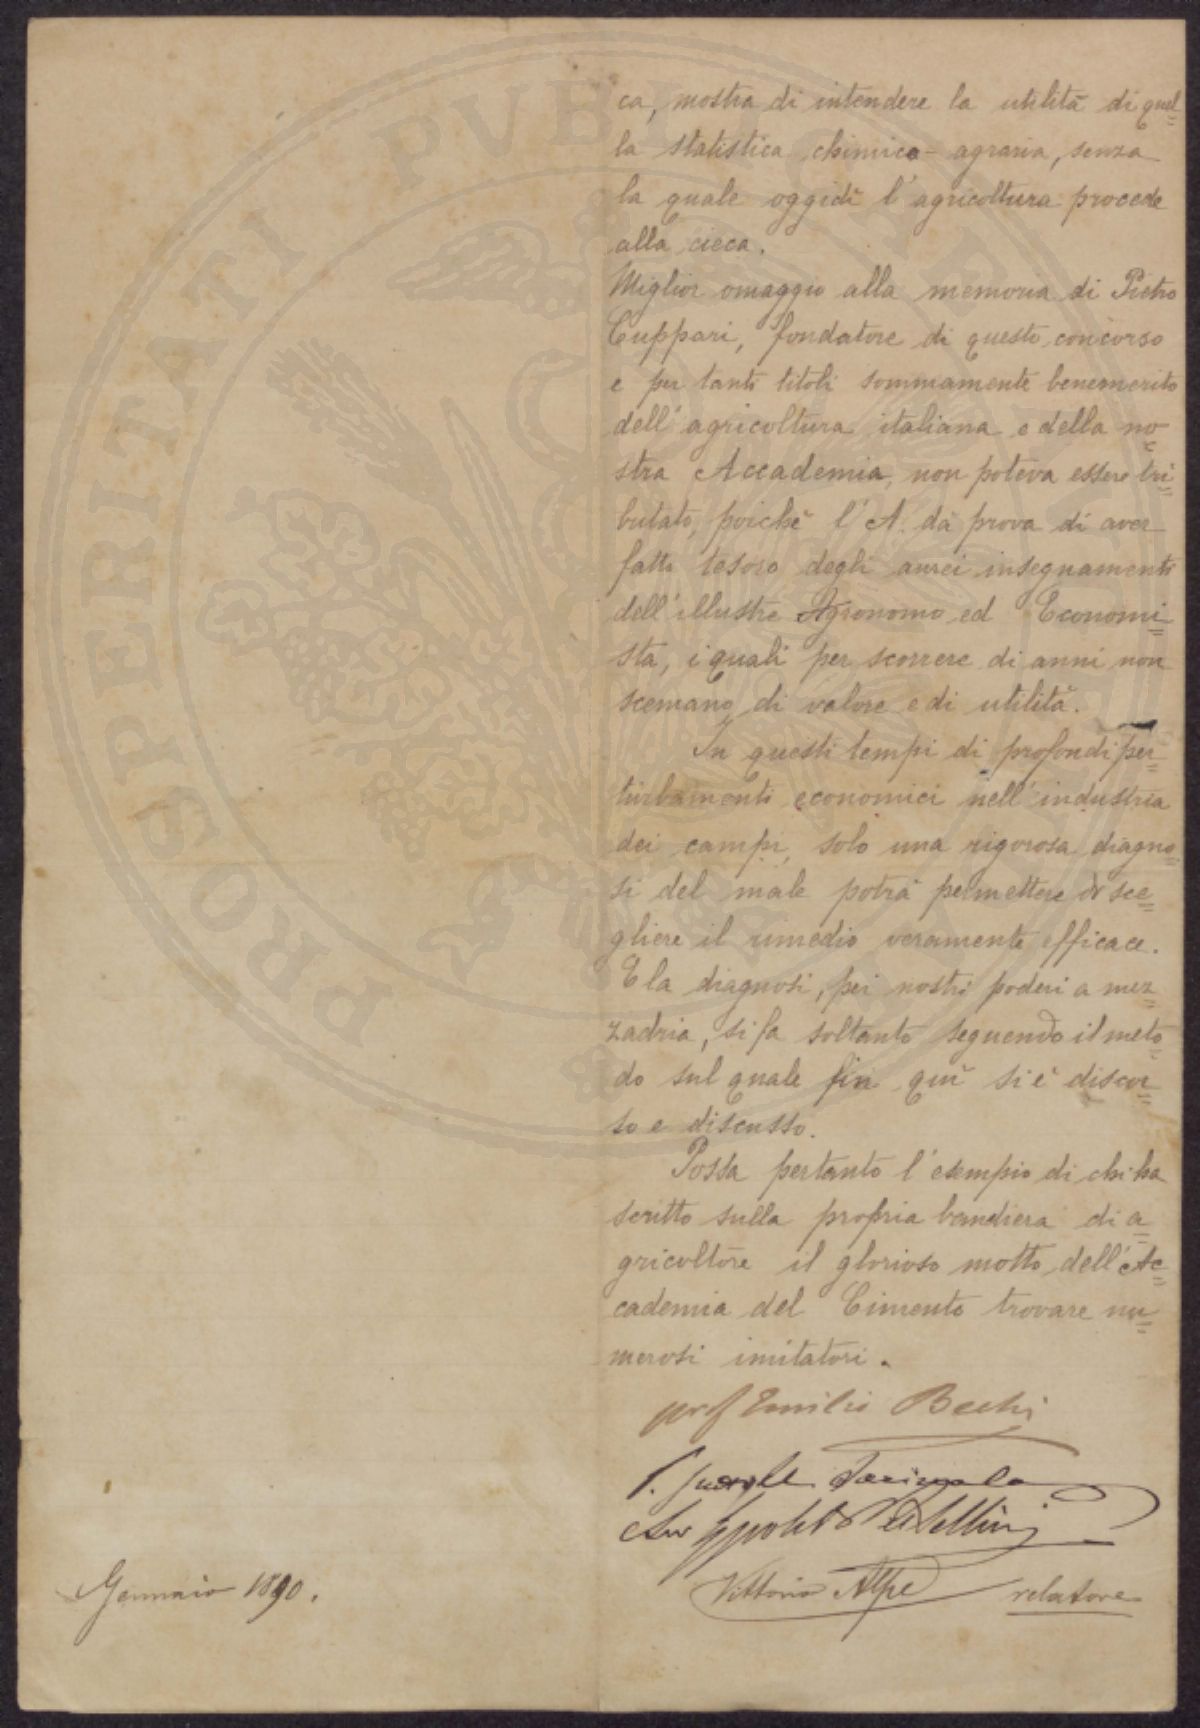 ca, mostra di intendere la utilità di quel=
la statistica chimico-agraria, senza
la quale oggidì l'agricoltura procede
alla cieca.
Miglior omaggio alla memoria di Pietro
Cuppari, fondatore di questo concorso
e per tanti titoli sommamente benemerito
dell'agricoltura italiana e della no=
stra Accademia, non poteva essere tri=
butato, poichè l'A. dà prova di aver
fatto tesoro degli aurei insegnamenti
dell'illustre Agronomo ed Economi=
sta, i quali per scorrere di anni non
scemano di valore e di utilità.
In questi tempi di profondi per=
turbamenti economici nell'industria
dei campi, solo una rigorosa diagno=
si del male potrà permettere di sce=
gliere il rimedio veramente efficace.
E la diagnosi, pei nostri poderi a mez=
zadria, si fa soltanto seguendo il meto=
do sul quale fin quì si è discor=
so e discusso.
Possa pertanto l'esempio di chi ha
scritto sulla propria bandiera di a=
gricoltore il glorioso motto dell'Ac=
cademia del Cimento trovare nu=
merosi imitatori.
prof Emilio Bechi
Vittorio Alpe relatore
Gennaio 1890.
PROSPERITATI PVBLICAE